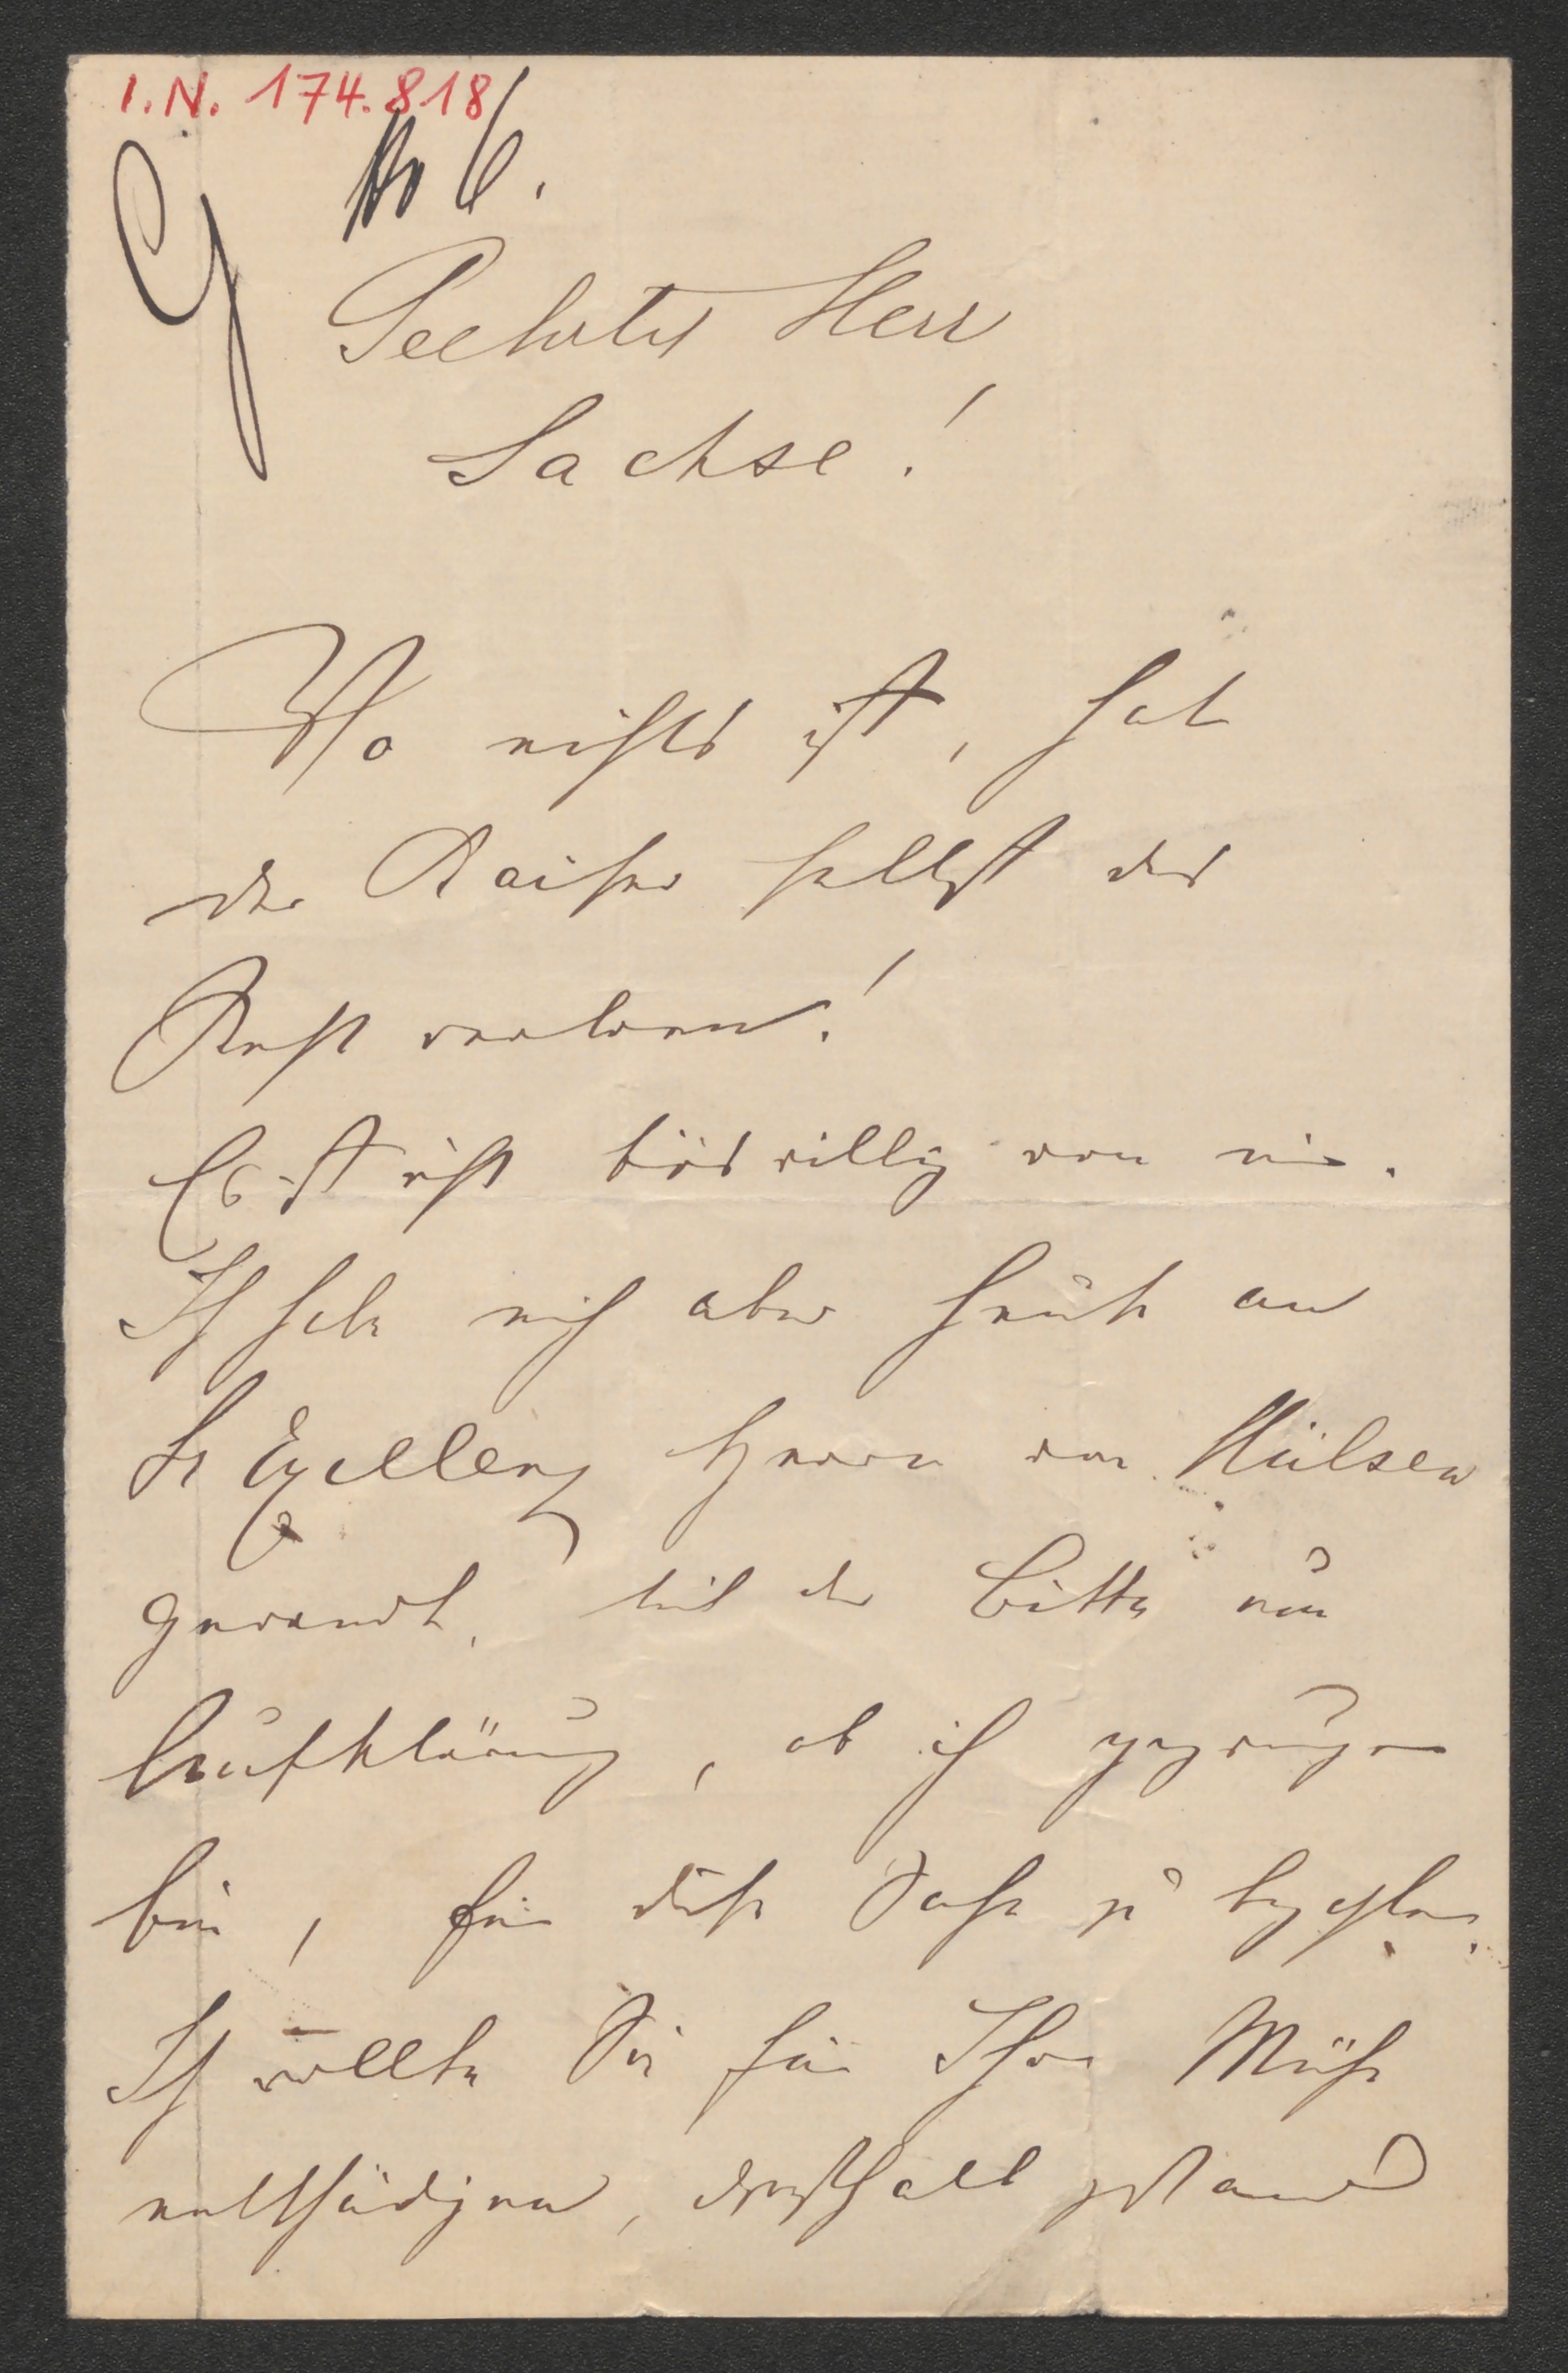 I.N. 174.818
No 6.
Geehrter Herr
Sachse!
Wo nichts ist, hat
der Kaiser selbst das
Recht verloren!
Es ist nicht böswillig von mir.
Ich habe mich aber heute an
Sr Excellenz Herrn von Hülsen
gewandt, mit der Bitte um
Aufklärung, ob ich gezwungen
bin, für diese Sache zu bezahlen.
Ich wollte Sie für Ihre Mühe
entschädigen, deshalb gestand